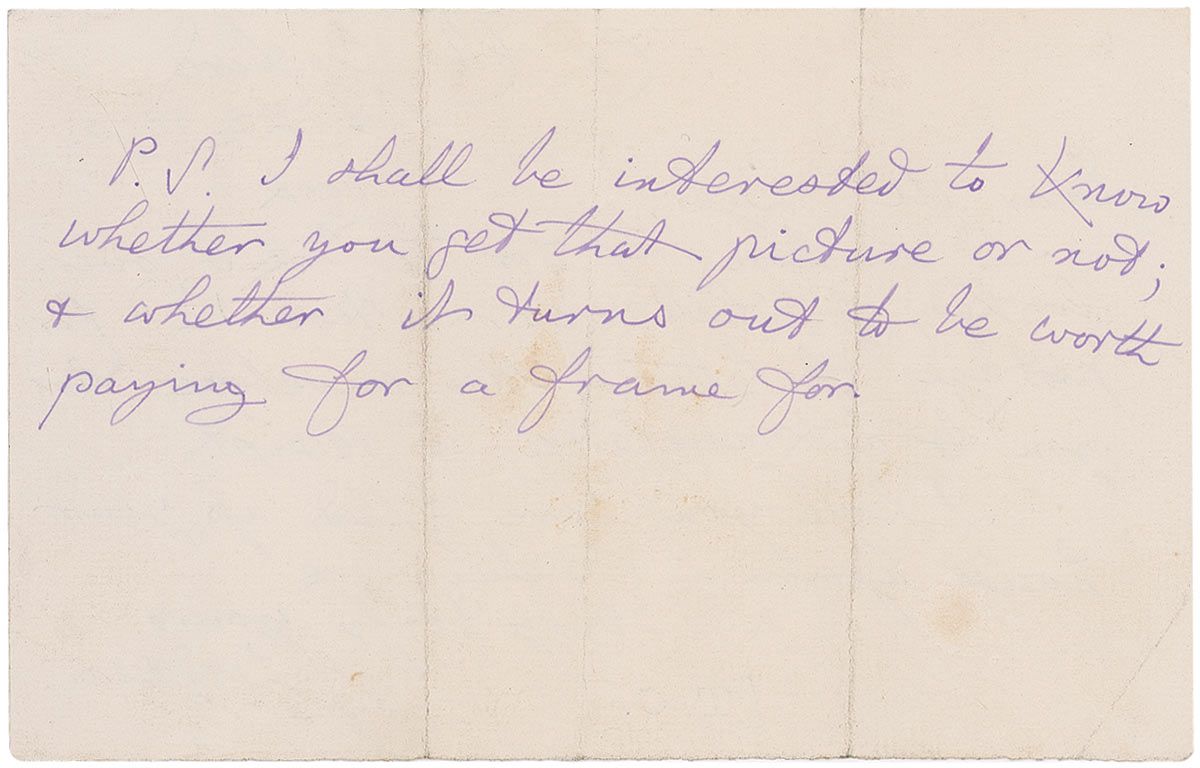 P.S. I shall be interested to know
whether you get that picture or not;
& whether it turns out to be worth
paying for a frame for.